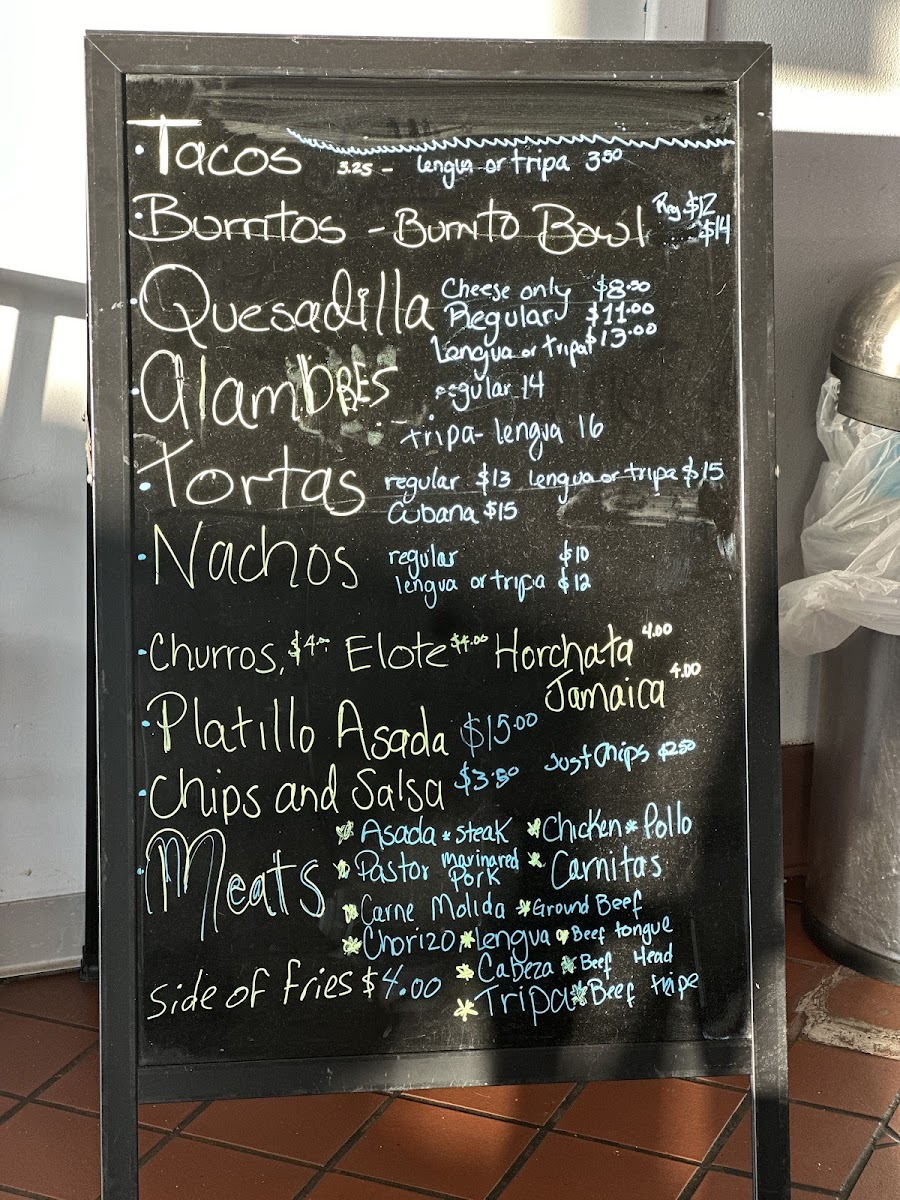 Tacos 3.25 - lengua or tripa 3⁵⁰
Burritos - Burrito Bowl Reg $12
$14
Quesadilla Cheese only $8.50
Regular $11.00
Lengua or tripa $13.00
AlamBRES regular 14
tripa - lengua 16
Tortas regular $13 lengua or tripa $15
Cubana $15
Nachos regular $10
lengua or tripa $12
Churros, $4.⁰⁰ Elote $4.00 Horchata 4.00
Jamaica 4.00
Platillo Asada $15.00
Chips and Salsa $3.50 Just Chips $2.50
Meats Asada * steak * Chicken * Pollo
Pastor Marinared Pork * Carnitas
* Carne Molida * Ground Beef
* Chorizo * lengua * Beef tongue
* Cabeza * Beef Head
* Tripa * Beef tripe
Side of fries $4.00